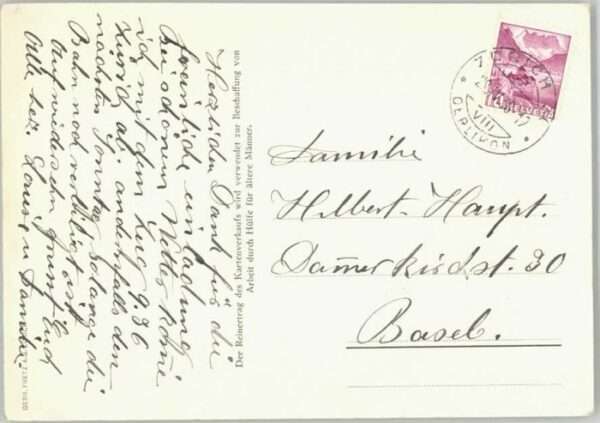 Herzlichen Dank für die
freundliche einladung
Bei schönem Wetter komme
ich mit dem Zug 9.36
Zürich ab. anderenfalls den
nächsten Sonntag solange die
Bahn noch verbilligt ist.
Auf wiedersehn Gruss Euch
Alle herz. Louise u Familie.
Der Reinertrag des Kartenverkaufs wird verwendet zur Beschaffung von
Arbeit durch Hülfe für ältere Männer.
ZÜRICH
VIII
OERLIKON
HELVETIA
Familie
Hilbert-Haupt.
Dammerkirchst. 30
Basel.